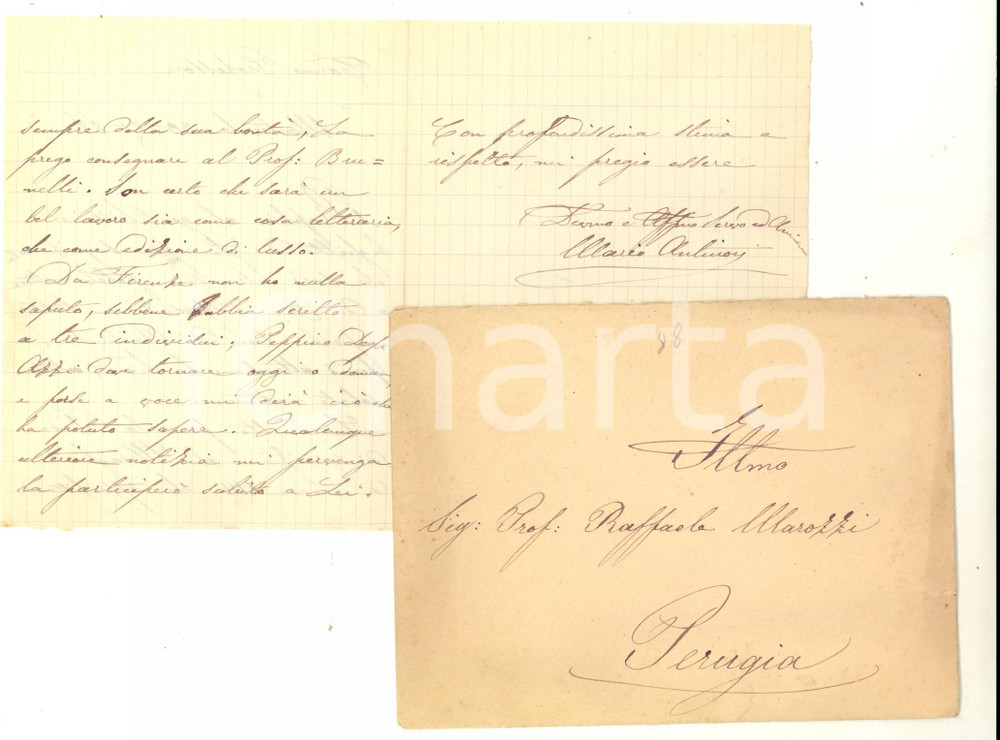 sempre della sua bontà, La
prego consegnare al Prof: Bru=
nelli. Son certo che sarà un
bel lavoro sia come cosa letteraria,
che come edizione di lusso.
Da Firenze non ho nulla
saputo, sebbene abbia scritto
a tre individui; Peppino Degli
Azzi deve tornare oggi o domani,
e forse a voce mi dirà ciò che
ha potuto sapere. Qualunque
ulteriore notizia mi pervenga
la parteciperò subito a Lei.
Con profondissima stima e
rispetto, mi pregio essere
Devmo e Affmo Servo ed Amico
Mario
88
Illmo
Sig: Prof: Raffaele Marozzi
Perugia
fumarta